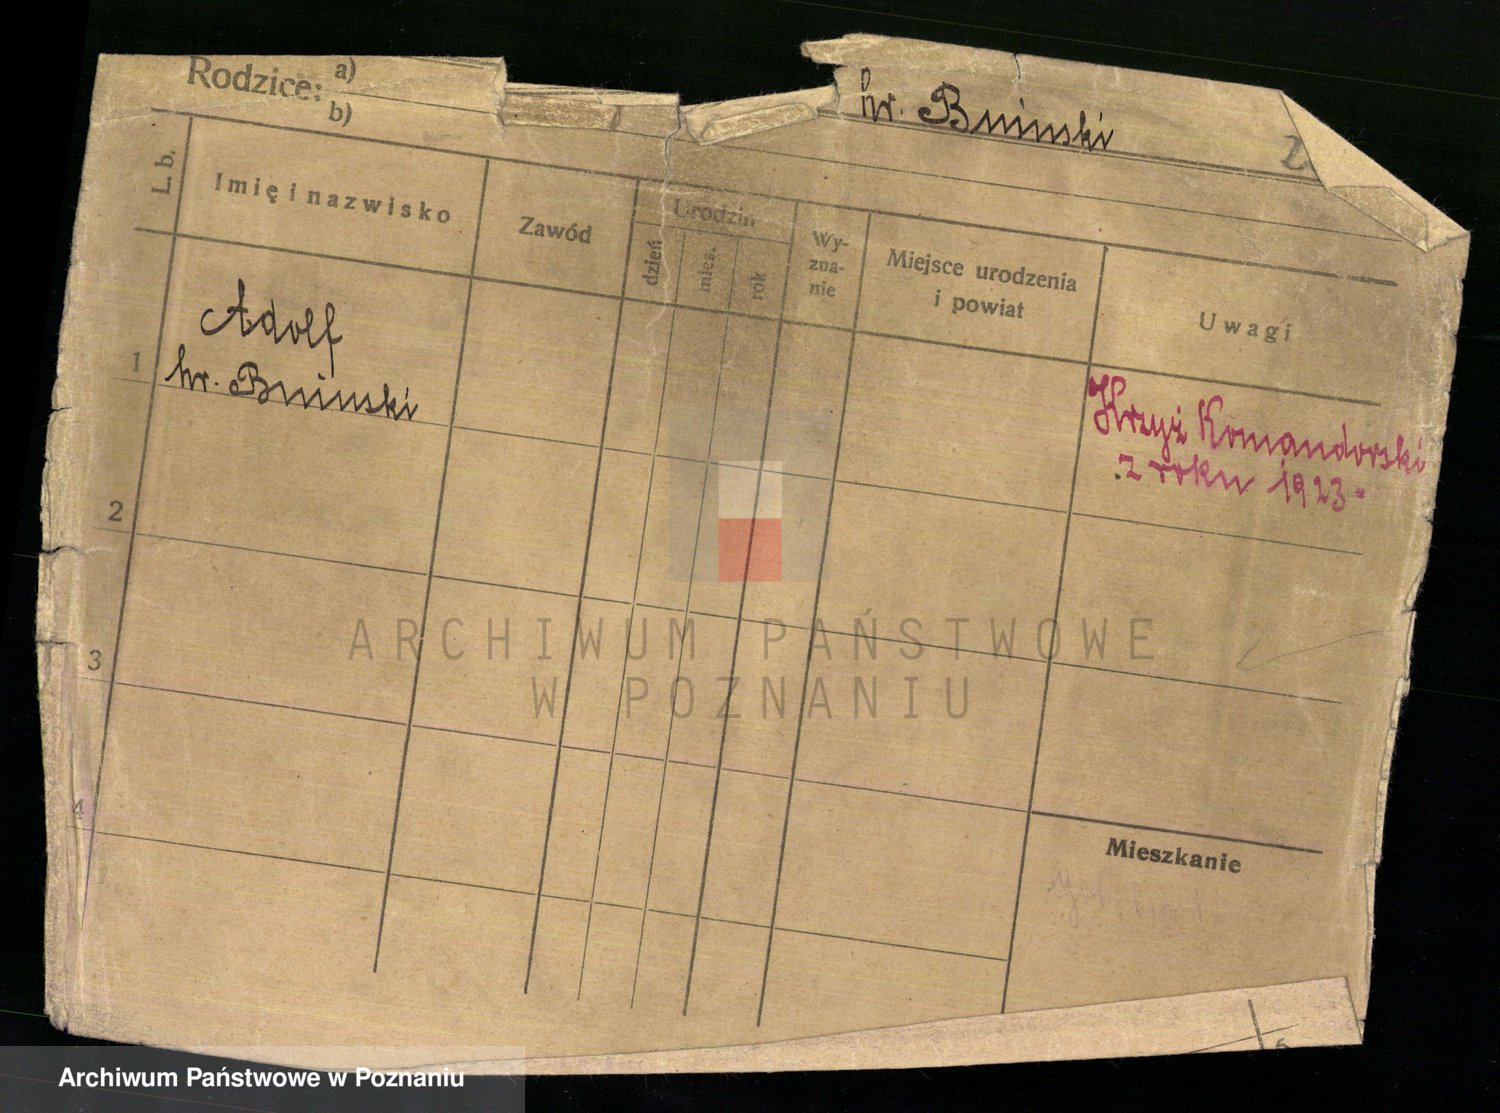 Rodzice: a)
b)
hr. Bniński
L. b.
Imię i nazwisko
Zawód
Urodzin
dzień
mies.
rok
Wy-
zna-
nie
Miejsce urodzenia
i powiat
Uwagi
1
Adolf
hr. Bniński
Krzyż Komandorski
z roku 1923.
2
3
4
Mieszkanie
ARCHIWUM PAŃSTWOWE
W POZNANIU
Archiwum Państwowe w Poznaniu